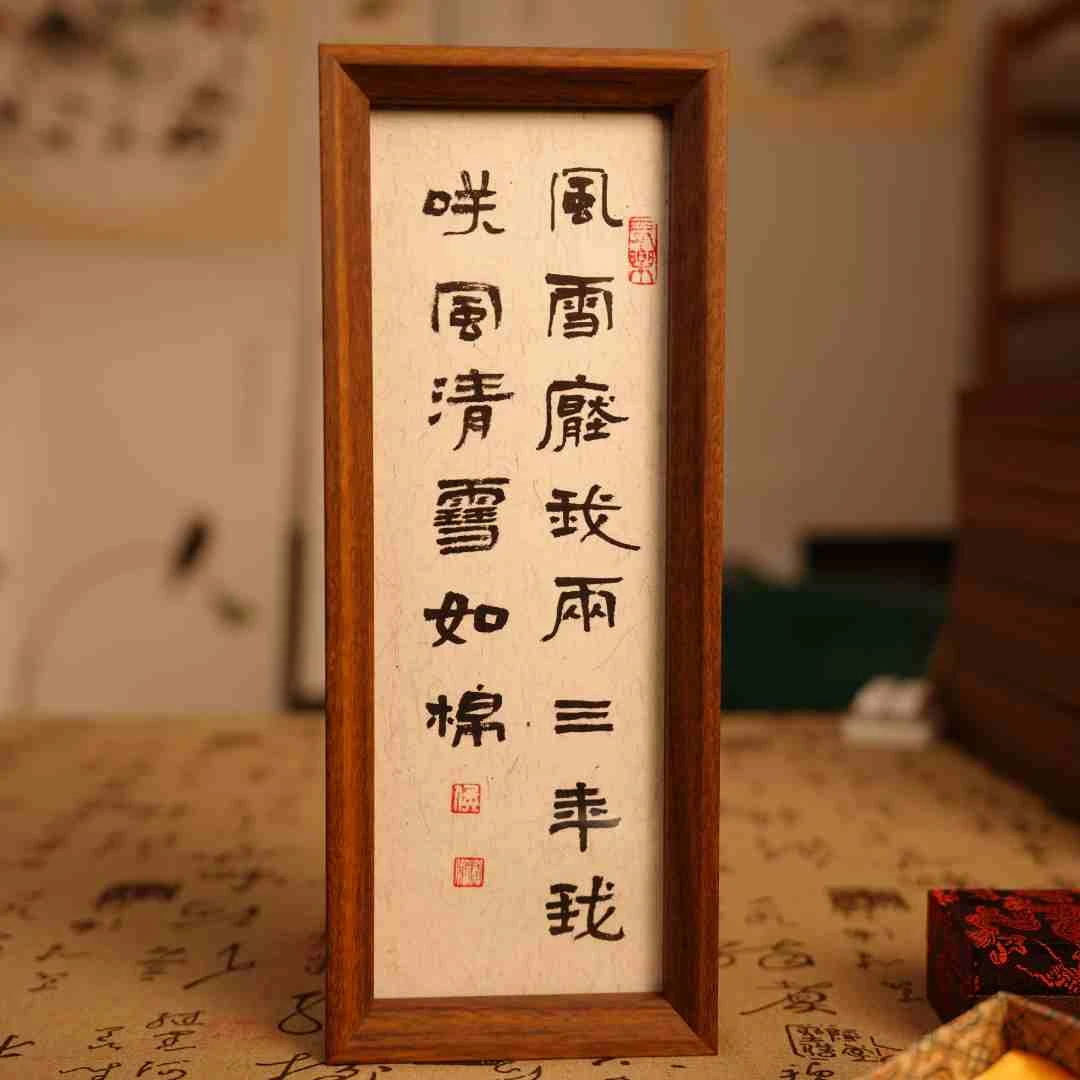 風雪壓我兩三年我
咲風清雪如棉
長樂